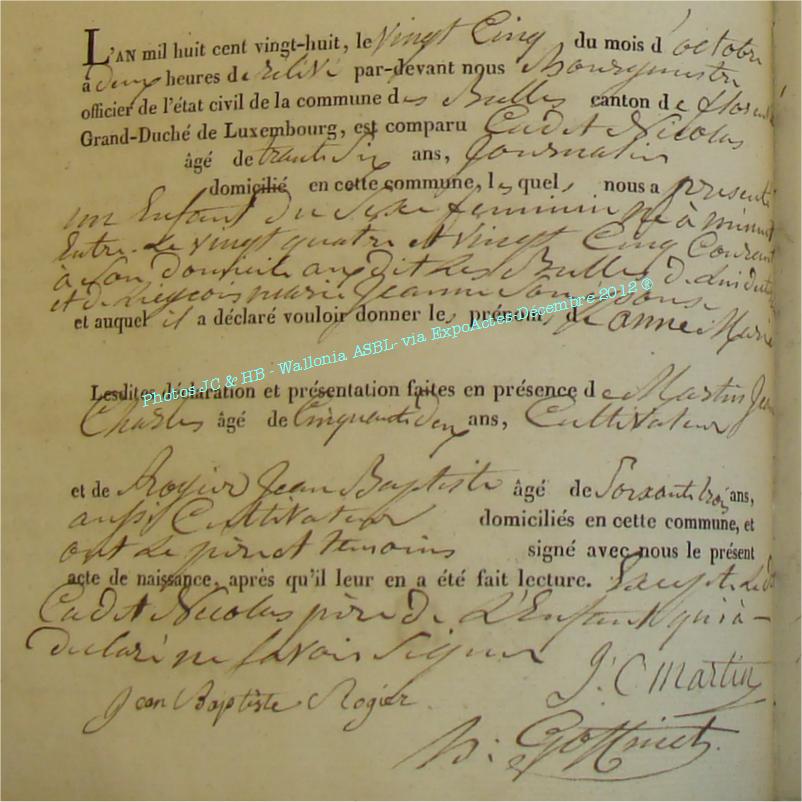 L'AN mil huit cent vingt-huit, le vingt Cinq du mois d'octobre
à deux heures de relevé par-devant nous Bourgmestre
officier de l'état civil de la commune des Bulles canton de florenv
Grand-Duché de Luxembourg, est comparu Cadet Nicolas
âgé de trante Six ans, Journalier
domicilié en cette commune, lequel nous a présenté
un Enfant du Sexe feminin né à minuit
Entre le vingt quatre et vingt Cinq Courant
à Son domicile audit Les Bulles de lui
et de Liegeois marie Jeanne Son épouse
et auquel il a déclaré vouloir donner les prénoms de anne Marie
Photos JC & HB - Wallonia ASBL- via ExpoActes-Décembre 2012 ®
Lesdites déclaration et présentation faites en présence de Martin Jean
Charles âgé de Cinquante deux ans, Cultivateur
et de Rogier Jean Baptiste âgé de Soixante trois ans,
aussi Cultivateur domiciliés en cette commune, et
ont Le père et temoins signé avec nous le présent
acte de naissance, après qu'il leur en a été fait lecture. Excepté Ledit
Cadet Nicolas père de L'Enfant qui à
declaré ne Savoir Signer
J. C Martin
Jean Baptiste Rogier